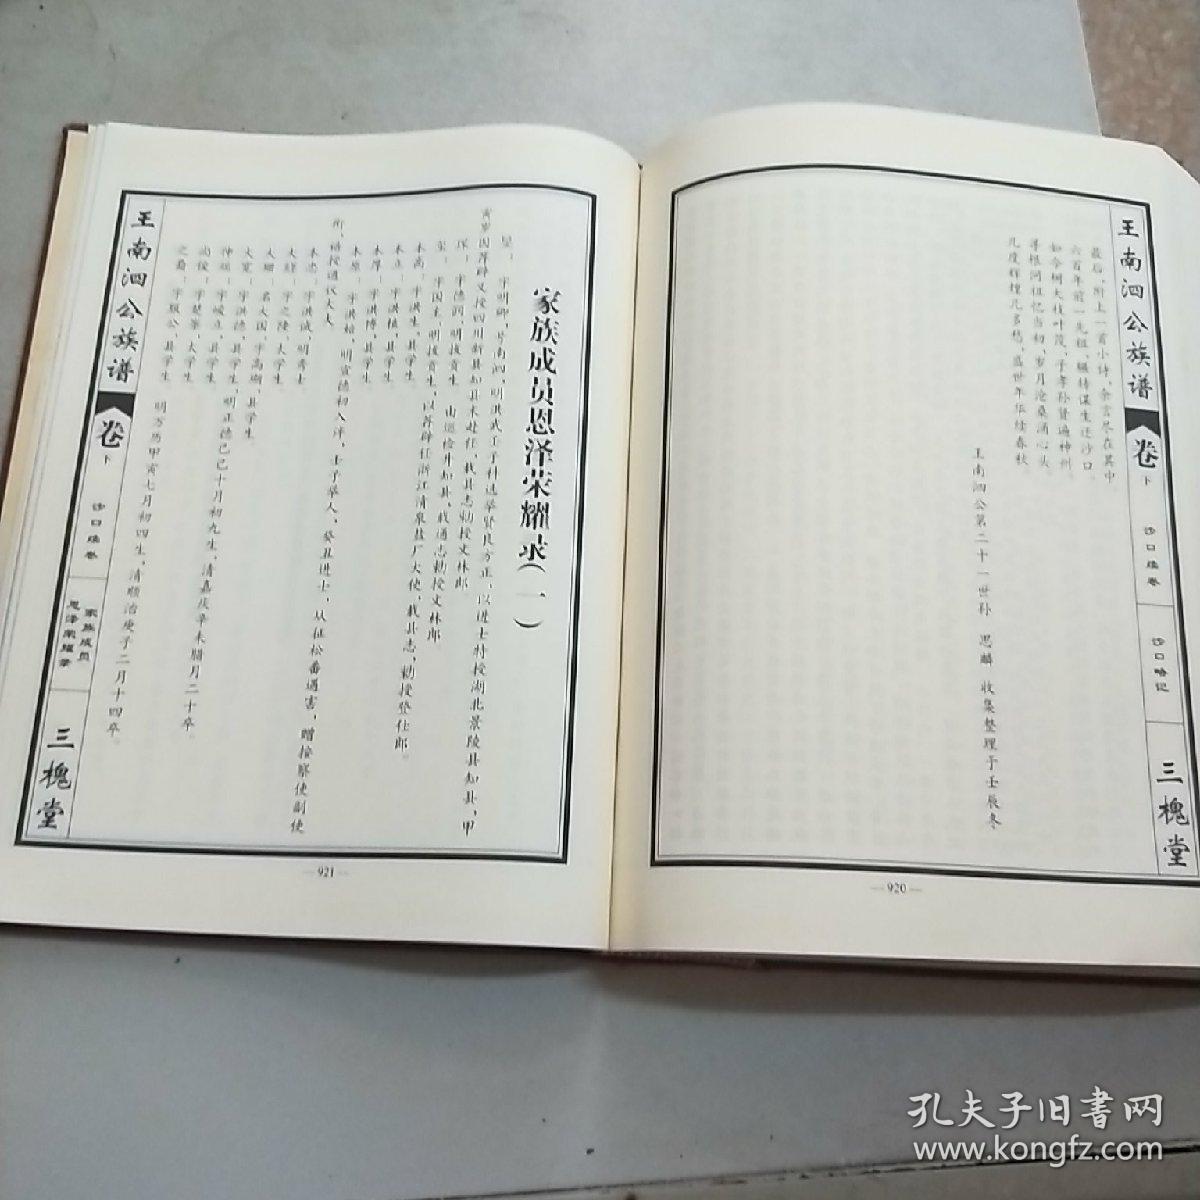 王南泗公族谱
卷
下
沙口续卷
沙口略记
三槐堂
最后,附上一首小诗,余言尽在其中
六百年前一先祖,辗转谋生迁沙口,
如今树大枝叶茂,子孝孙贤遍神州。
寻根问祖忆当初,岁月沧桑涌心头,
几度辉煌几多愁,盛世年华续春秋
王南泗公第二十一世孙 思麟 收集整理于壬辰冬
— 920 —
家族成员恩泽荣耀录(一)
星:字明卿,号南泗,明洪武壬子科选举贤良方正,以进士特授湖北景陵县知县,甲
寅岁因荐辟又授四川新县知县未赴任,载县志勅授文林郎。
琛:字德润,明拔贡生 由巡检升知县,载通志勅授文林郎。
玺:字国玉,明拔贡生,以荐辟任浙江清泉盐厂大使,载县志,勅授登仕郎。
本高:字洪生,县学生。
本立:字洪植,县学生。
本厚:字洪博,县学生
本原:字洪始,明宣德初入泮,壬子举人,癸丑进士,从征松番遇害,赠按察使副使
衔,诰授通议大夫
本忠:字洪诚,明秀士
大经:字之陵,太学生
大珊:名大国,字高瑚,县学生。
大宽:字洪德,县学生,明正德己巳十月初九生,清嘉庆辛未腊月二十卒。
仲瑶:字峻立,县学生
尚俊:字楚峯,太学生
之裔:字服公,县学生 明万历甲寅七月初四生,清顺治庚子二月十四卒。
王南泗公族谱
卷
下
沙口续卷
家族成员
恩泽荣耀录
三槐堂
— 921 —
孔夫子旧书网
www.kongfz.com